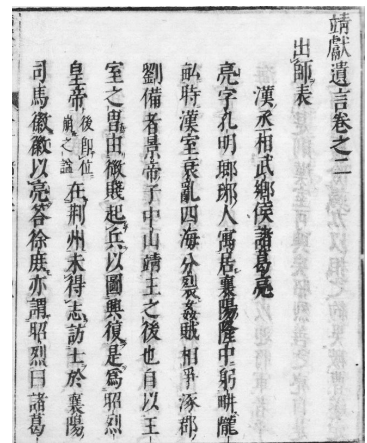 靖獻遺言卷之二
出師表
漢丞相武鄉侯諸葛亮
亮字孔明瑯琊人寓居襄陽隆中躬畊隴
畝時漢室衰亂四海分裂姦賊相爭涿郡
劉備者景帝子中山靖王之後也自以王
室之冑由微賤起兵以圖興復是爲昭烈
皇帝後卽位崩之謚在荆州未得志訪士於襄陽
司馬徽徽以亮答徐庶亦謂昭烈曰諸葛